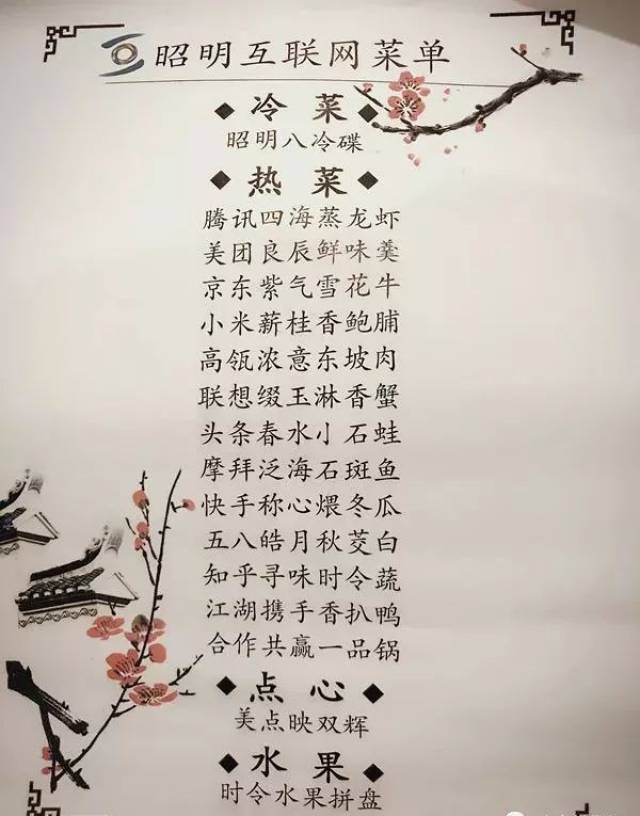 昭明互联网菜单
◆冷菜◆
昭明八冷碟
◆热菜◆
腾讯四海蒸龙虾
美团良辰鲜味羹
京东紫气雪花牛
小米薪桂香鲍脯
高瓴浓意东坡肉
联想缀玉淋香蟹
头条春水小石蛙
摩拜泛海石斑鱼
快手称心煨冬瓜
五八皓月秋茭白
知乎寻味时令蔬
江湖携手香扒鸭
合作共赢一品锅
◆点心◆
美点映双辉
◆水果◆
时令水果拼盘